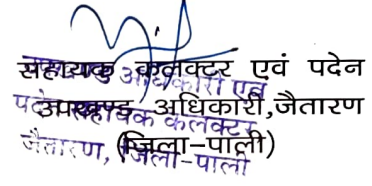 सहायक कलक्टर एवं पदेन
उपखण्ड अधिकारी,जैतारण
(जिला-पाली)
अधिकारी एवं
पदेन सहायक कलक्टर
जैतारण, जिला-पाली